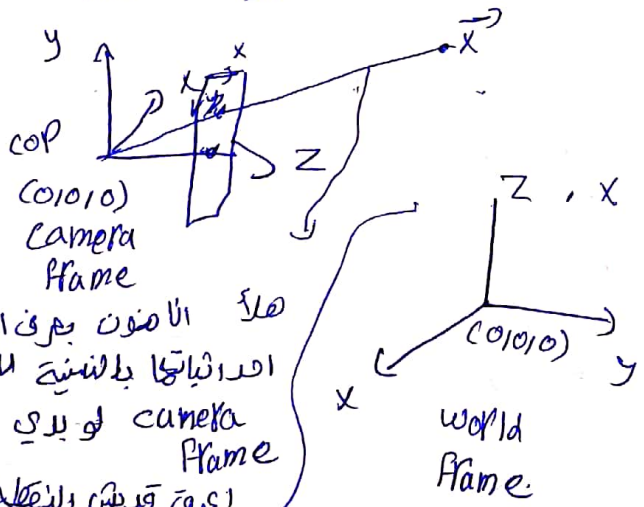 y
x
X
X
COP
(0,0,0)
Camera
frame
Z
Z , X
(0,0,0)
y
X
world
frame.
هلأ انا هون بعرف ا
احداثياتها بالنسبة ال
camera لو بدي
frame